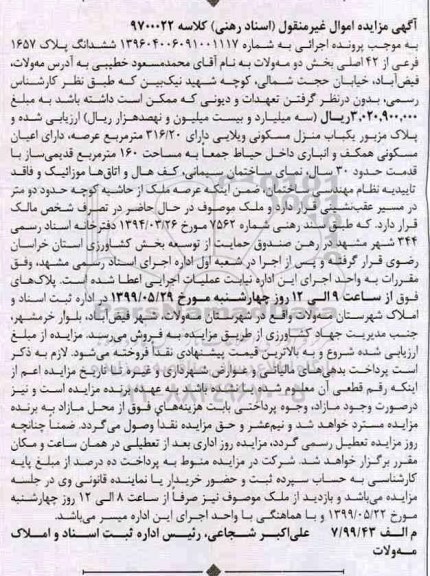 آگهی مزایده اموال غیرمنقول (اسناد رهنی) کلاسه ۹۷۰۰۰۲۲
به موجب پرونده اجرائی به شماره ۱۳۹۶۰۴۰۰۶۰۹۱۰۰۱۱۱۷ ششدانگ پلاک ۱۶۵۷
فرعی از ۴۲ اصلی بخش دو مه‌ولات به نام آقای محمدمسعود خطیبی به آدرس مه‌ولات،
فیض‌آباد، خیابان حجت شمالی، کوچه شهید نیک‌بین که طبق نظر کارشناس
رسمی، بدون درنظر گرفتن تعهدات و دیونی که ممکن است داشته باشد به مبلغ
۳,۰۲۰,۹۰۰,۰۰۰ ریال (سه میلیارد و بیست میلیون و نهصدهزار ریال) ارزیابی شده و
پلاک مزبور یکباب منزل مسکونی ویلایی دارای ۳۱۶/۲۰ مترمربع عرصه، دارای اعیان
مسکونی همکف و انباری داخل حیاط جمعاً به مساحت ۱۶۰ مترمربع قدیمی‌ساز با
قدمت حدود ۳۰ سال، نمای ساختمان سیمانی، کف هال و اتاق‌ها موزائیک و فاقد
تاییدیه نظام مهندسی ساختمان، ضمن اینکه عرصه ملک از حاشیه کوچه حدود دو متر
در مسیر عقب‌نشینی قرار دارد و ملک موصوف در حال حاضر در تصرف شخص مالک
قرار دارد. که طبق سند رهنی شماره ۷۵۶۲ مورخ ۱۳۹۴/۰۳/۲۶ دفترخانه اسناد رسمی
۳۴۴ شهر مشهد در رهن صندوق حمایت از توسعه بخش کشاورزی استان خراسان
رضوی قرار گرفته و پس از اجرا در شعبه اول اداره اجرای اسناد رسمی مشهد، وفق
مقررات به واحد اجرای این اداره نیابت عملیات اجرایی اعطا شده است. پلاک‌های
فوق از ساعت ۹ الی ۱۲ روز چهارشنبه مورخ ۱۳۹۹/۰۵/۲۹ در اداره ثبت اسناد و
املاک شهرستان مه‌ولات واقع در شهرستان مه‌ولات، شهر فیض‌آباد، بلوار خرمشهر،
جنب مدیریت جهاد کشاورزی از طریق مزایده به فروش می‌رسد. مزایده از مبلغ
ارزیابی شده شروع و به بالاترین قیمت پیشنهادی نقداً فروخته می‌شود. لازم به ذکر
است پرداخت بدهی‌های مالیاتی و عوارض شهرداری و غیره تا تاریخ مزایده اعم از
اینکه رقم قطعی آن معلوم شده یا نشده باشد به عهده برنده مزایده است و نیز
درصورت وجود مازاد، وجوه پرداختی بابت هزینه‌های فوق از محل مازاد به برنده
مزایده مسترد خواهد شد و نیم‌عشر و حق مزایده نقداً وصول می‌گردد. ضمناً چنانچه
روز مزایده تعطیل رسمی گردد، مزایده روز اداری بعد از تعطیلی در همان ساعت و مکان
مقرر برگزار خواهد شد. شرکت در مزایده منوط به پرداخت ده درصد از مبلغ پایه
کارشناسی به حساب سپرده ثبت و حضور خریدار یا نماینده قانونی وی در جلسه
مزایده می‌باشد و بازدید از ملک موصوف نیز صرفاً از ساعت ۸ الی ۱۲ روز چهارشنبه
مورخ ۱۳۹۹/۰۵/۲۲ و با هماهنگی با واحد اجرای این اداره میسر می‌باشد.
م الف ۷/۹۹/۴۳ علی‌اکبر شجاعی، رئیس اداره ثبت اسناد و املاک
مه‌ولات